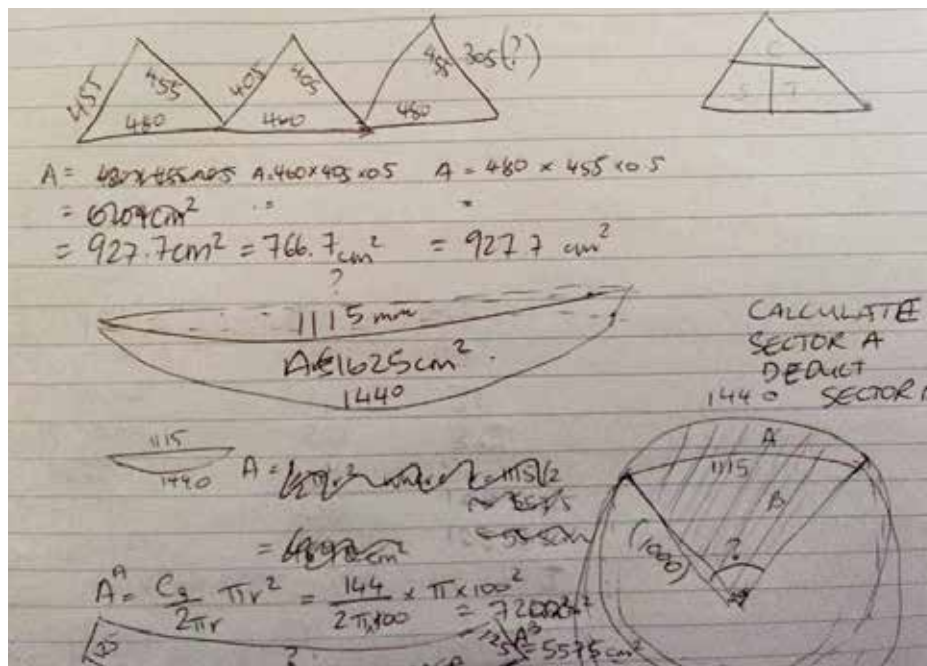 455 455 405 405 455 305(?)
480 460 480
C
S T
A = 480 x 455 x 0.5 A = 460 x 405 x 0.5 A = 480 x 455 x 0.5
=
= 927.7cm² = 766.7cm² = 927.7 cm²
?
1115mm
A = 1625cm².
1440
CALCULATE
SECTOR A
DEDUCT
SECTOR
1440
1115
1440
A =
A
1115
B
(1000)
?
Aᴬ = Cₐ/2πr πr² = 144/2π100 x π x 100²
= 7200cm²
Aᴮ = 5575cm²
125 ? 125